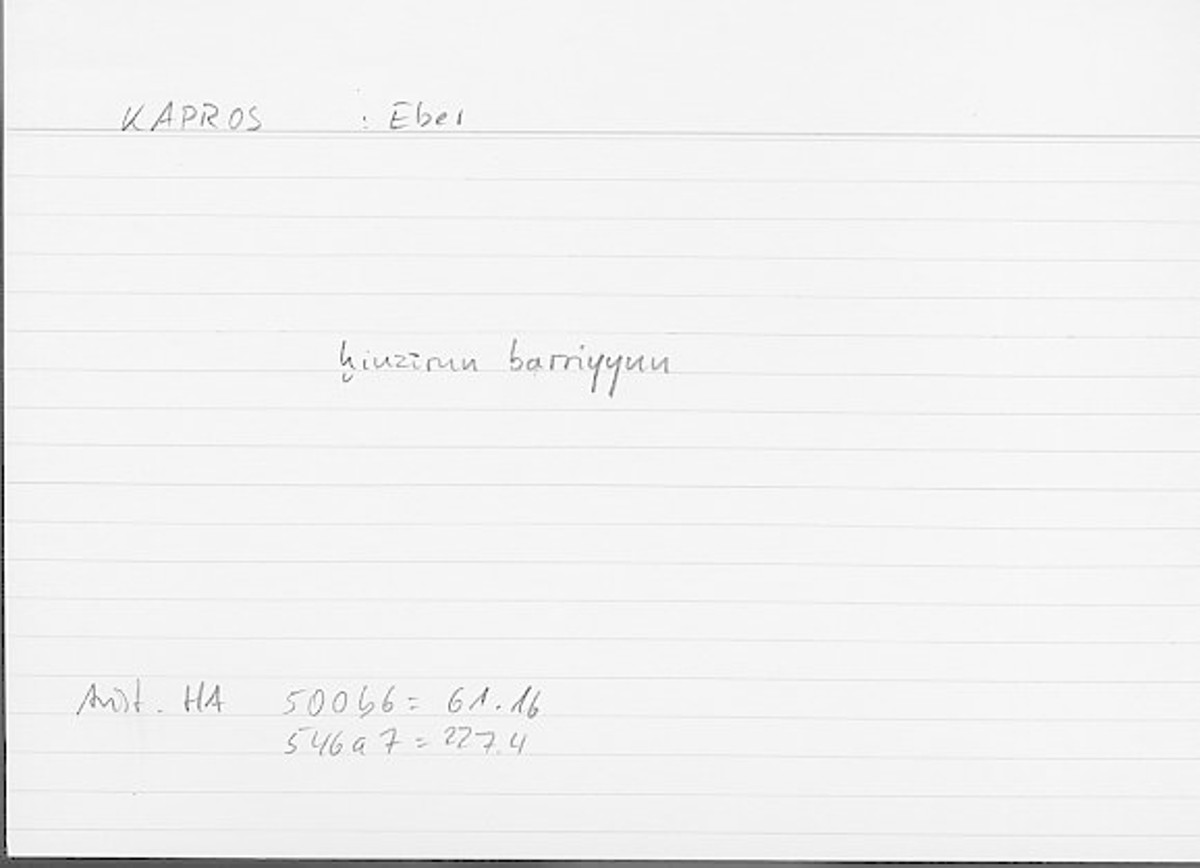 KAPROS : Eber
ḫinzīrun barriyyun
Arist. HA 500b6 = 61.16
546a7 = 227.4